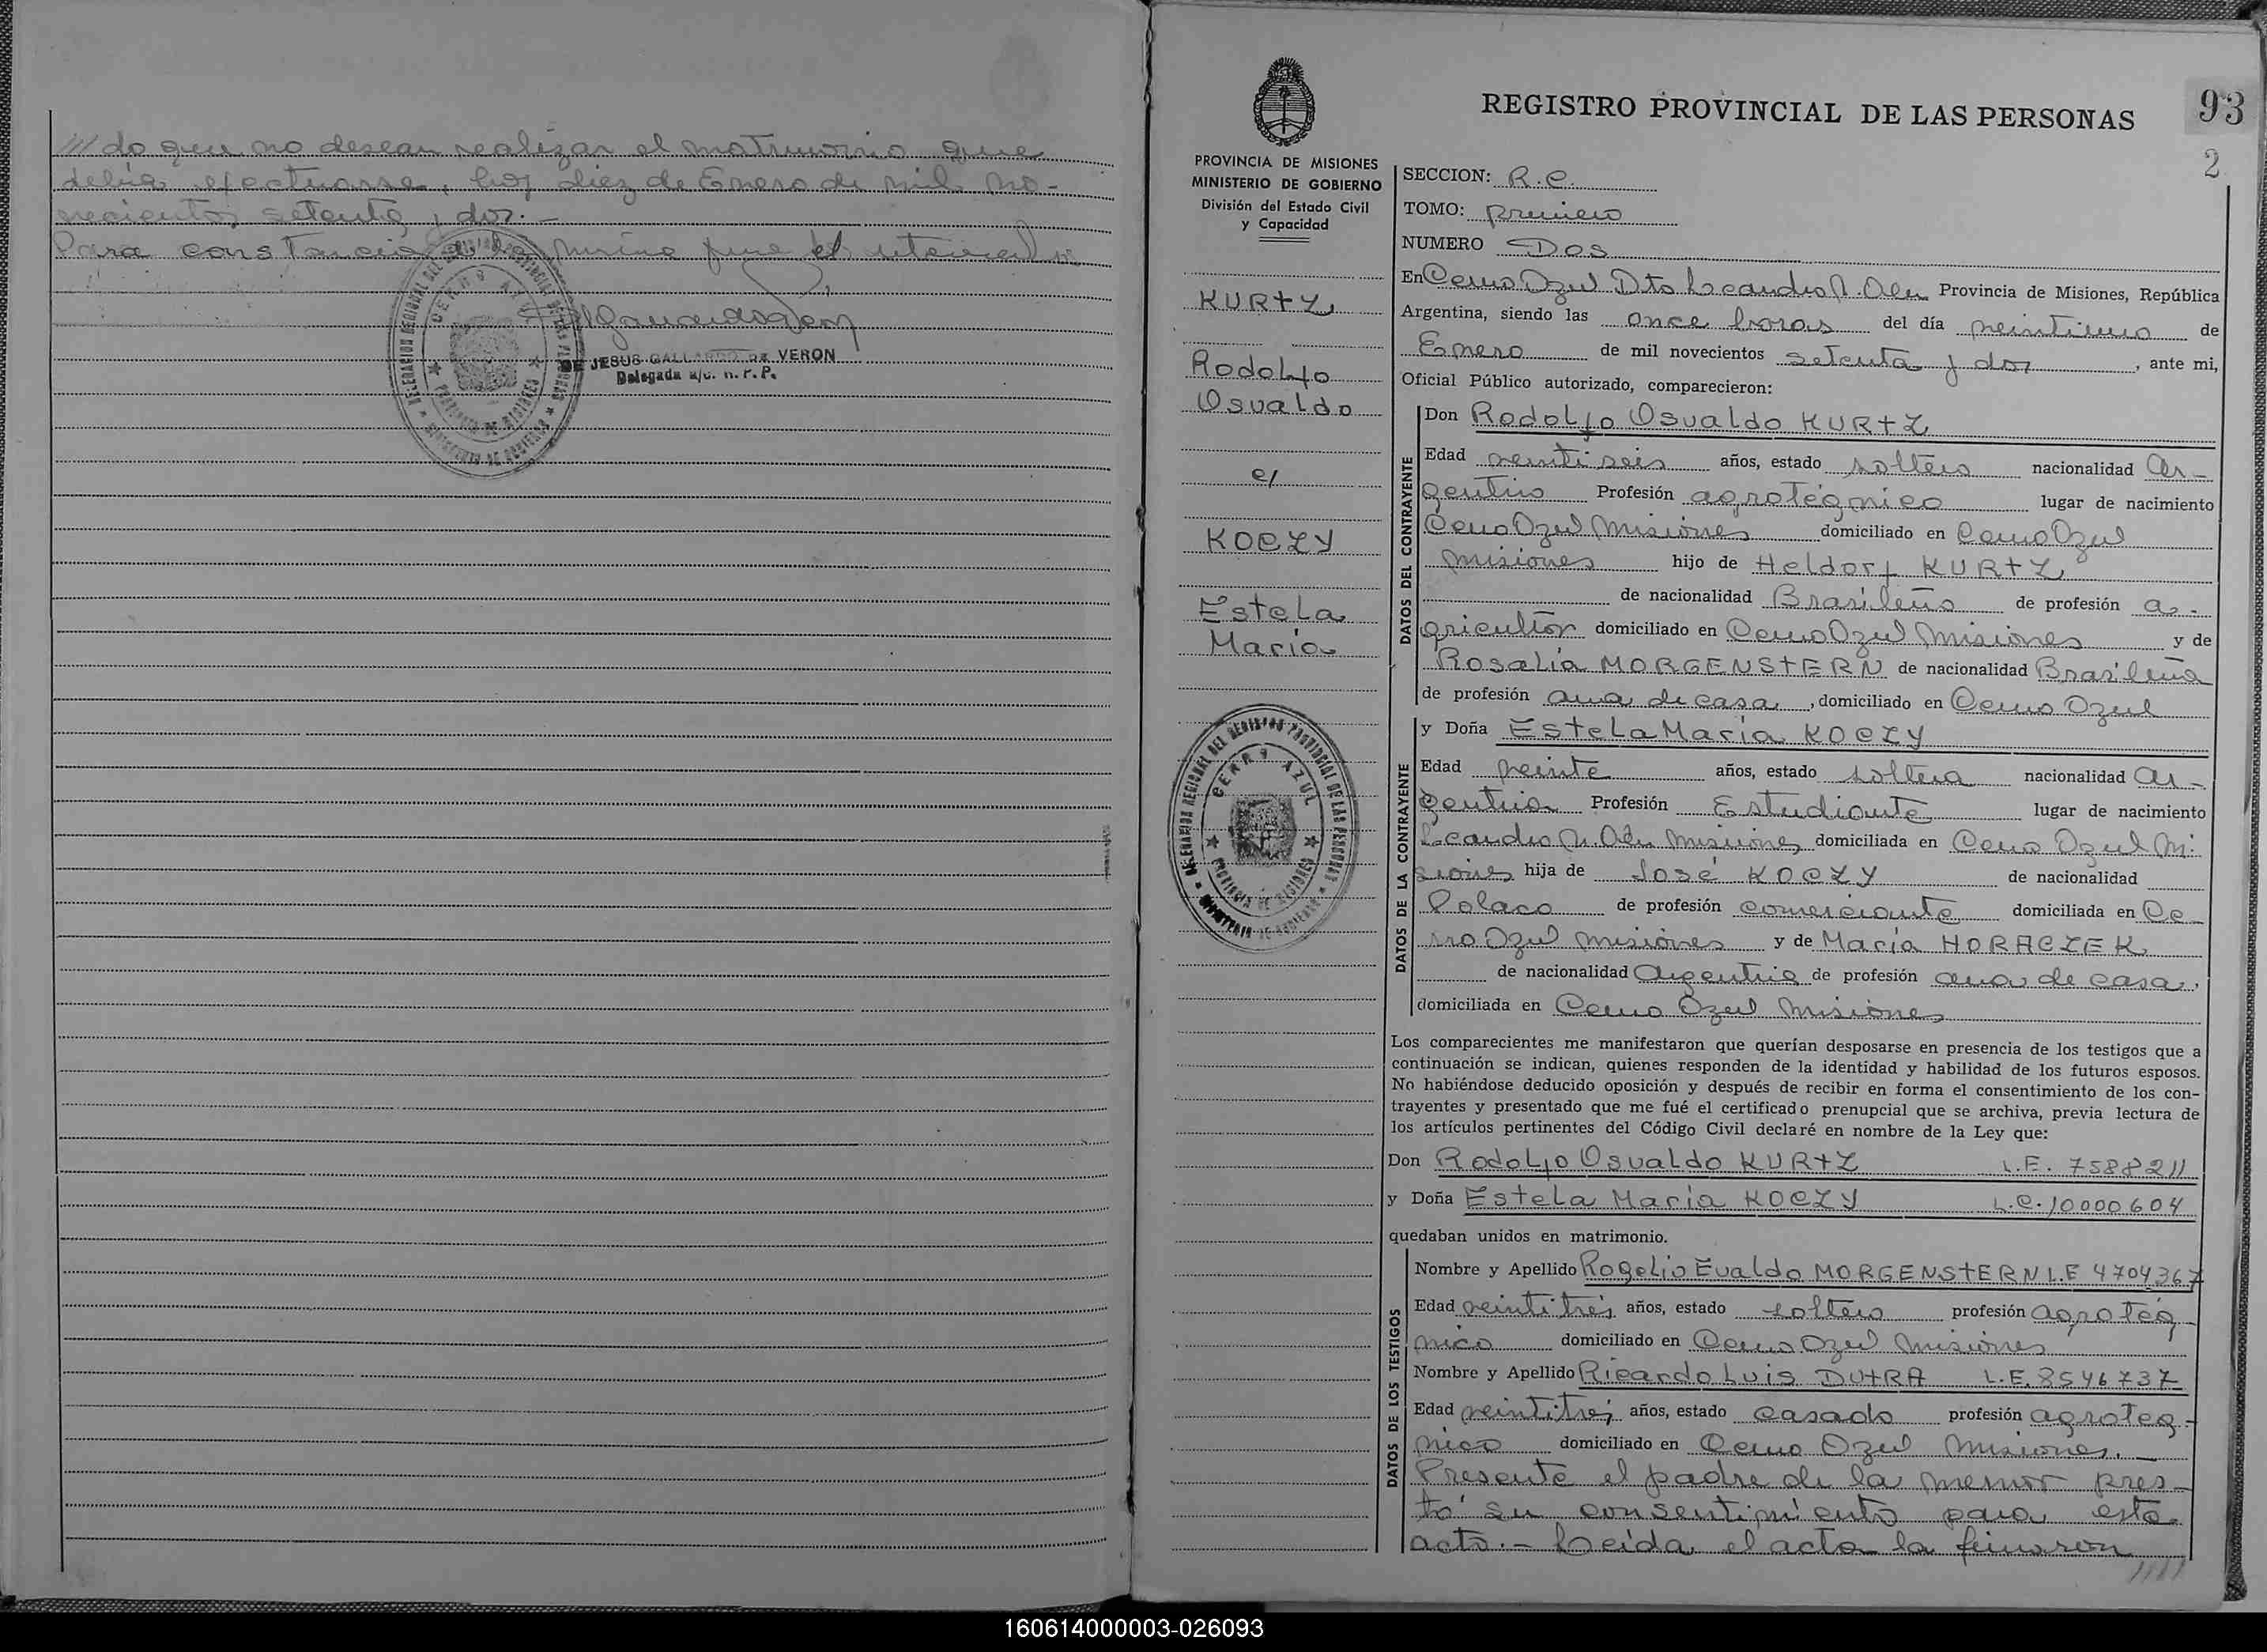 //// do que no desean realizar el matrimonio que
debía efectuarse, hoy diez de Enero de mil no-
vecientos setenta y dos.-
Para constancia de la misma firma el
DE JESUS GALLARDO DE VERON
Delegada a/c. R. P. P.
DELEGACION REGIONAL DEL REGISTRO PROVINCIAL DE LAS PERSONAS
CERRO AZUL
PROVINCIA DE MISIONES
MINISTERIO DE GOBIERNO
93
2
PROVINCIA DE MISIONES
MINISTERIO DE GOBIERNO
División del Estado Civil
y Capacidad
KURTZ
Rodolfo
Osvaldo
c/
KOCZY
Estela
María
DELEGACION REGIONAL DEL REGISTRO PROVINCIAL DE LAS PERSONAS
CERRO AZUL
PROVINCIA DE MISIONES
MINISTERIO DE GOBIERNO
REGISTRO PROVINCIAL DE LAS PERSONAS
SECCION: R.C.
TOMO: primero
NUMERO Dos
En Cerro Azul Dto Leandro N. Alem Provincia de Misiones, República
Argentina, siendo las once horas del día veintiuno de
Enero de mil novecientos setenta y dos, ante mi,
Oficial Público autorizado, comparecieron:
DATOS DEL CONTRAYENTE
Don Rodolfo Osvaldo KURTZ
Edad veintiseis años, estado soltero nacionalidad Ar-
gentino Profesión agrotégnico lugar de nacimiento
Cerro Azul Misiones domiciliado en Cerro Azul
Misiones hijo de Heldorf KURTZ
de nacionalidad Brasileño de profesión a-
gricultor domiciliado en Cerro Azul Misiones y de
Rosalía MORGENSTERN de nacionalidad Brasileña
de profesión ama de casa, domiciliado en Cerro Azul
DATOS DE LA CONTRAYENTE
y Doña Estela María KOCZY
Edad veinte años, estado soltera nacionalidad Ar-
gentina Profesión Estudiante lugar de nacimiento
Leandro N. Alem Misiones domiciliada en Cerro Azul Mi-
siones hija de José KOCZY de nacionalidad
Polaco de profesión comerciante domiciliada en Ce-
rro Azul Misiones y de María HORACZEK
de nacionalidad Argentina de profesión ama de casa,
domiciliada en Cerro Azul Misiones
Los comparecientes me manifestaron que querían desposarse en presencia de los testigos que a
continuación se indican, quienes responden de la identidad y habilidad de los futuros esposos.
No habiéndose deducido oposición y después de recibir en forma el consentimiento de los con-
trayentes y presentado que me fué el certificado prenupcial que se archiva, previa lectura de
los artículos pertinentes del Código Civil declaré en nombre de la Ley que:
Don Rodolfo Osvaldo KURTZ L.E. 7588211
y Doña Estela María KOCZY L.C. 10000604
quedaban unidos en matrimonio.
DATOS DE LOS TESTIGOS
Nombre y Apellido Rogelio Evaldo MORGENSTERN L.E 4704367
Edad veintitrés años, estado soltero profesión agrotég
nico domiciliado en Cerro Azul Misiones
Nombre y Apellido Ricardo Luis DUTRA L.E. 8546737
Edad veintitrés años, estado casado profesión agroteg-
nico domiciliado en Cerro Azul Misiones.
Presente el padre de la menor pres-
tó su consentimiento para este
acto.- Leída el acta la firmaron
////
160614000003-026093